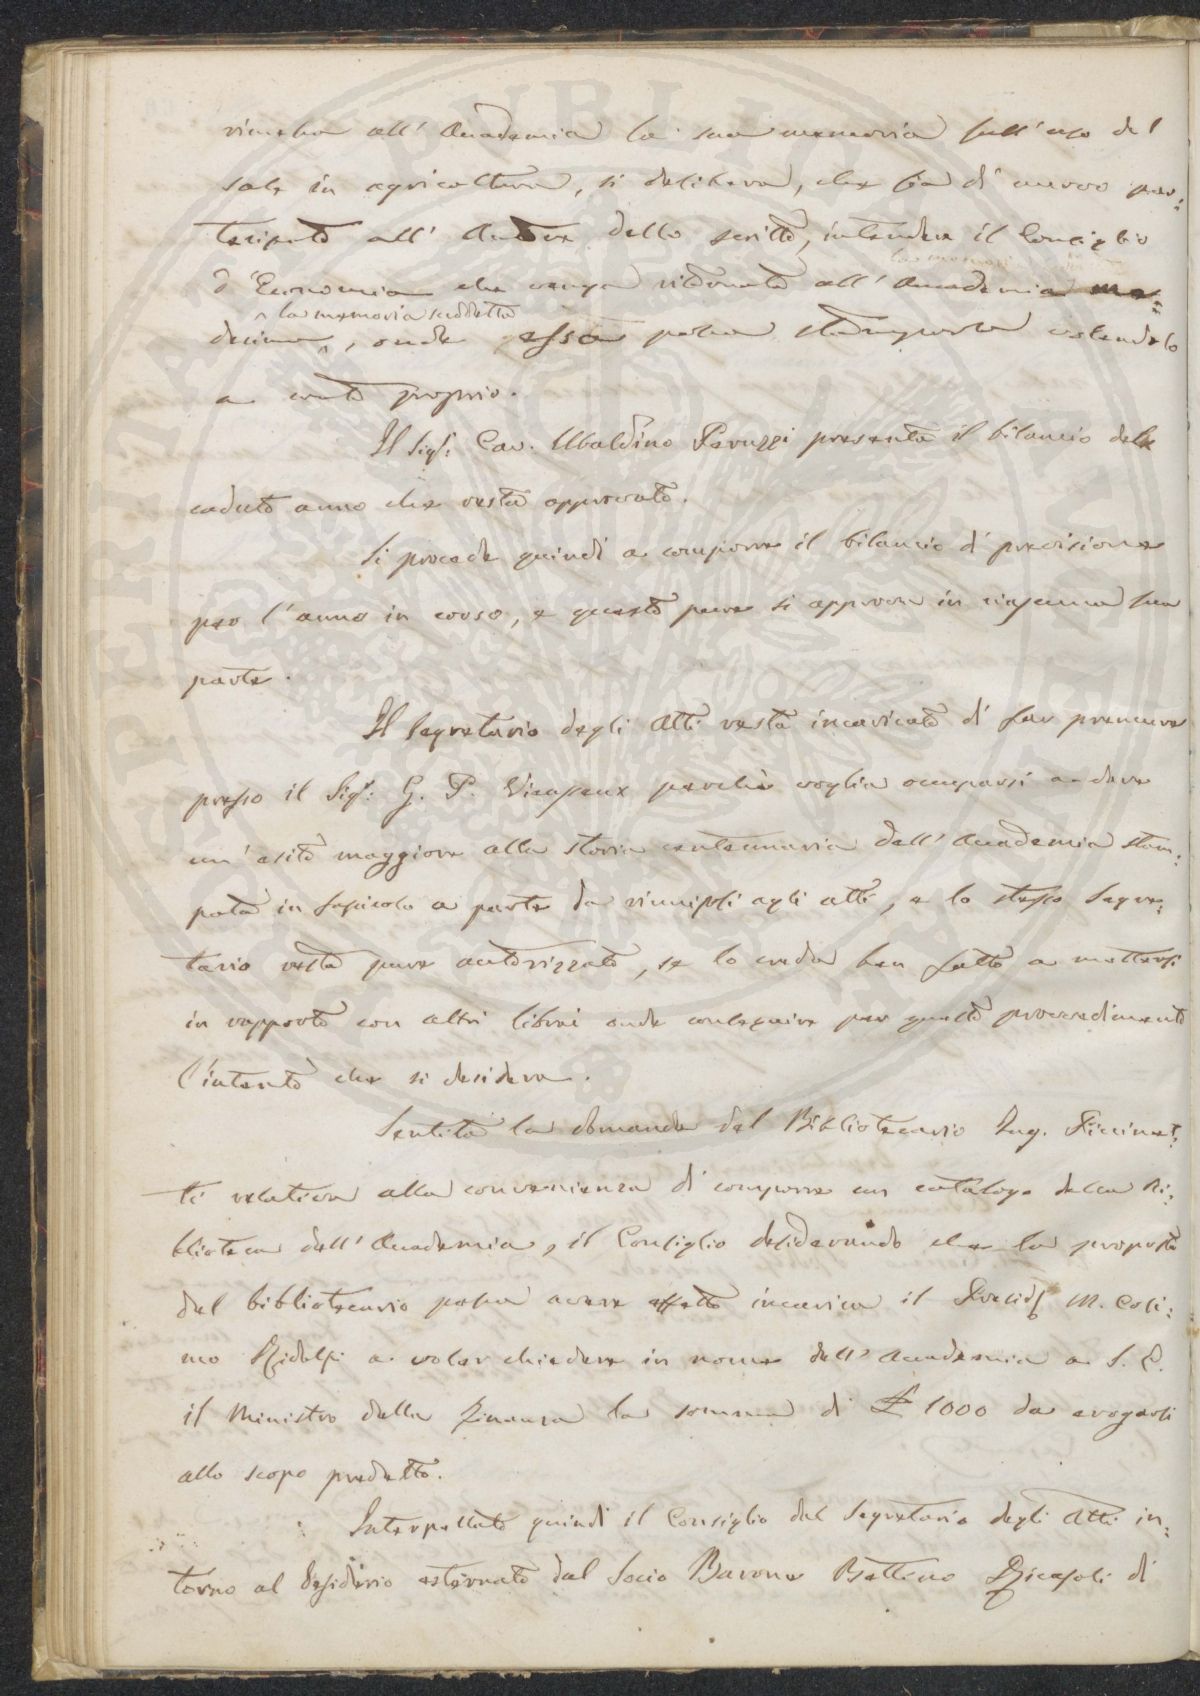 rimessa all' Accademia la sua memoria sull'uso del
sale in agricoltura, si delibera, che sia di nuovo par=
tecipato all' Autore dello scritto, intendere il Consiglio
d'Economia che venga ritornata all' Accademia me=
la memoria suddetta
desima, onde essa possa stamparla volendolo
a conto proprio.
Il Sigr: Cav. Ubaldino Peruzzi presenta il bilancio dele
caduto anno che resta approvato.
Si procede quindi a comporre il bilancio di previsione
per l'anno in corso, e questo pure si approva in ciascuna sua
parte.
Il Segretario degli Atti resta incaricato di far premure
presso il Sigr: G. P. Vieusseux perchè voglia occuparsi a dare
un'esito maggiore alla storia centennaria dell' Accademia stam=
pata in fascicolo a parte da riunirsi agli atti, e lo stesso Segre=
tario resta pure autorizzato, se lo creda ben fatto a mettersi
in rapporto con altri librai onde conseguire per questo provvedimento
l'intento che si desidera.
Sentita la domanda del Bibliotecario Ing. Piccinet=
ti relativa alla convenienza di comporre un catalogo della Bi=
blioteca dell' Accademia, il Consiglio desiderando che la proposta
del bibliotecario possa avere effetto incarica il Presid M. Cosi=
mo Ridolfi a voler chiedere in nome dell' Accademia a S. E.
il Ministro della Finanza la somma di £ 1000 da erogarsi
allo scopo predetto.
Interpellato quindi il Consiglio dal Segretario degli Atti in=
torno al desiderio esternato dal Socio Barone Bettino Ricasoli di